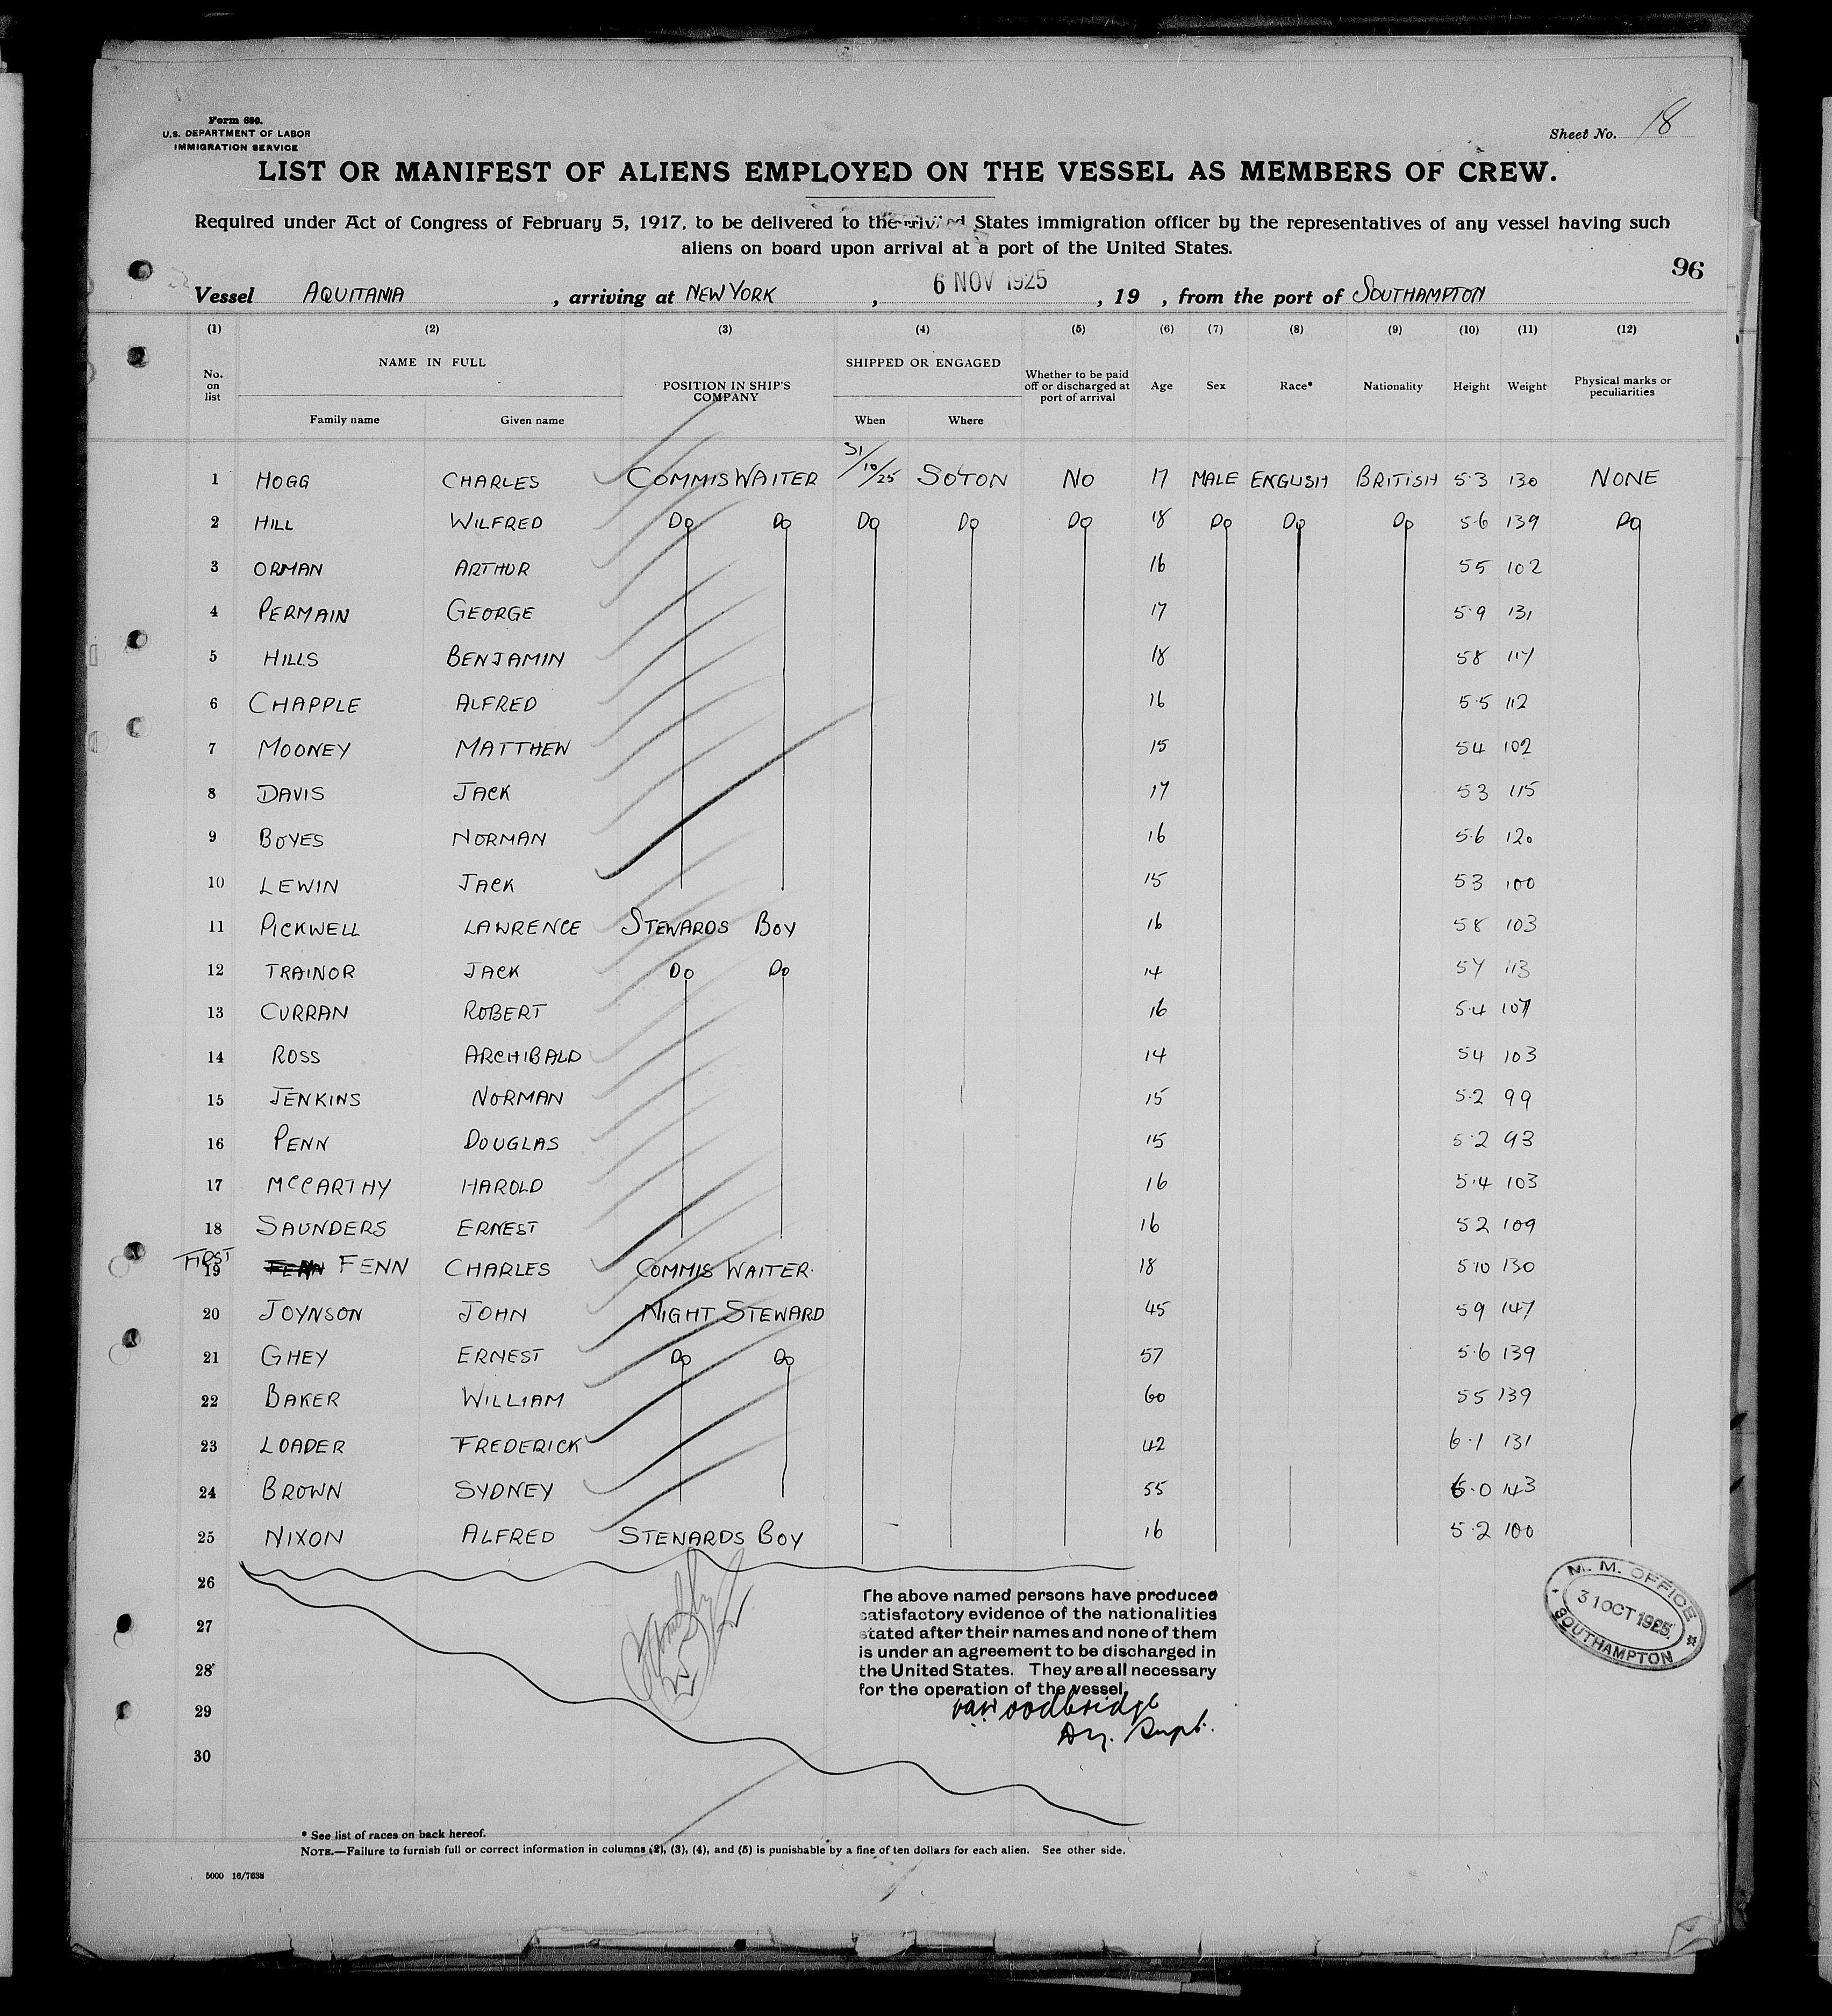 Form 680.
U.S. DEPARTMENT OF LABOR
IMMIGRATION SERVICE
Sheet No. 18
LIST OR MANIFEST OF ALIENS EMPLOYED ON THE VESSEL AS MEMBERS OF CREW.
Required under Act of Congress of February 5, 1917, to be delivered to the States immigration officer by the representatives of any vessel having such
aliens on board upon arrival at a port of the United States.
96
Vessel AQUITANIA, arriving at NEW YORK, 6 NOV 1925, 19 , from the port of SOUTHAMPTON
(1) (2) (3) (4) (5) (6) (7) (8) (9) (10) (11) (12)
No. on list NAME IN FULL Family name Given name POSITION IN SHIP'S COMPANY SHIPPED OR ENGAGED When Where Whether to be paid off or discharged at port of arrival Age Sex Race* Nationality Height Weight Physical marks or peculiarities
1 HOGG CHARLES COMMIS WAITER 31/10/25 SOTON NO 17 MALE ENGLISH BRITISH 5.3 130 NONE
2 HILL WILFRED Do Do Do Do Do 18 Do Do Do 5.6 139 Do
3 ORMAN ARTHUR 16 5 5 102
4 PERMAIN GEORGE 17 5.9 131
5 HILLS BENJAMIN 18 5 8 117
6 CHAPPLE ALFRED 16 5.5 112
7 MOONEY MATTHEW 15 5 4 102
8 DAVIS JACK 17 5 3 115
9 BOYES NORMAN 16 5.6 120
10 LEWIN JACK 15 5 3 100
11 PICKWELL LAWRENCE STEWARDS BOY 16 5 8 103
12 TRAINOR JACK Do Do 14 5 7 113
13 CURRAN ROBERT 16 5.4 107
14 ROSS ARCHIBALD 14 5 4 103
15 JENKINS NORMAN 15 5.2 99
16 PENN DOUGLAS 15 5.2 93
17 McCARTHY HAROLD 16 5.4 103
18 SAUNDERS ERNEST 16 5 2 109
FIRST
19 FENN FENN CHARLES COMMIS WAITER. 18 5 10 130
20 JOYNSON JOHN NIGHT STEWARD 45 5 9 147
21 GHEY ERNEST Do Do 57 5.6 139
22 BAKER WILLIAM 60 5 5 139
23 LOADER FREDERICK 42 6.1 131
24 BROWN SYDNEY 55 6.0 143
25 NIXON ALFRED STEWARDS BOY 16 5.2 100
26
27
28
29
30
The above named persons have produced
satisfactory evidence of the nationalities
stated after their names and none of them
is under an agreement to be discharged in
the United States. They are all necessary
for the operation of the vessel.
Woodbridge
Dy. Supt.
M. M. OFFICE
31 OCT 1925
SOUTHAMPTON
* See list of races on back hereof.
NOTE.—Failure to furnish full or correct information in columns (2), (3), (4), and (5) is punishable by a fine of ten dollars for each alien. See other side.
5000 16/7638